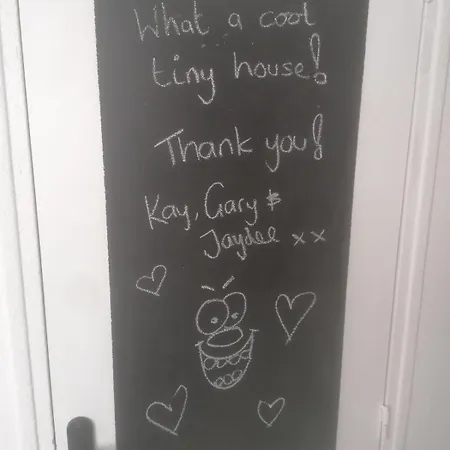 What a cool
tiny house!
Thank you!
Kay, Gary &
Jaydee xx